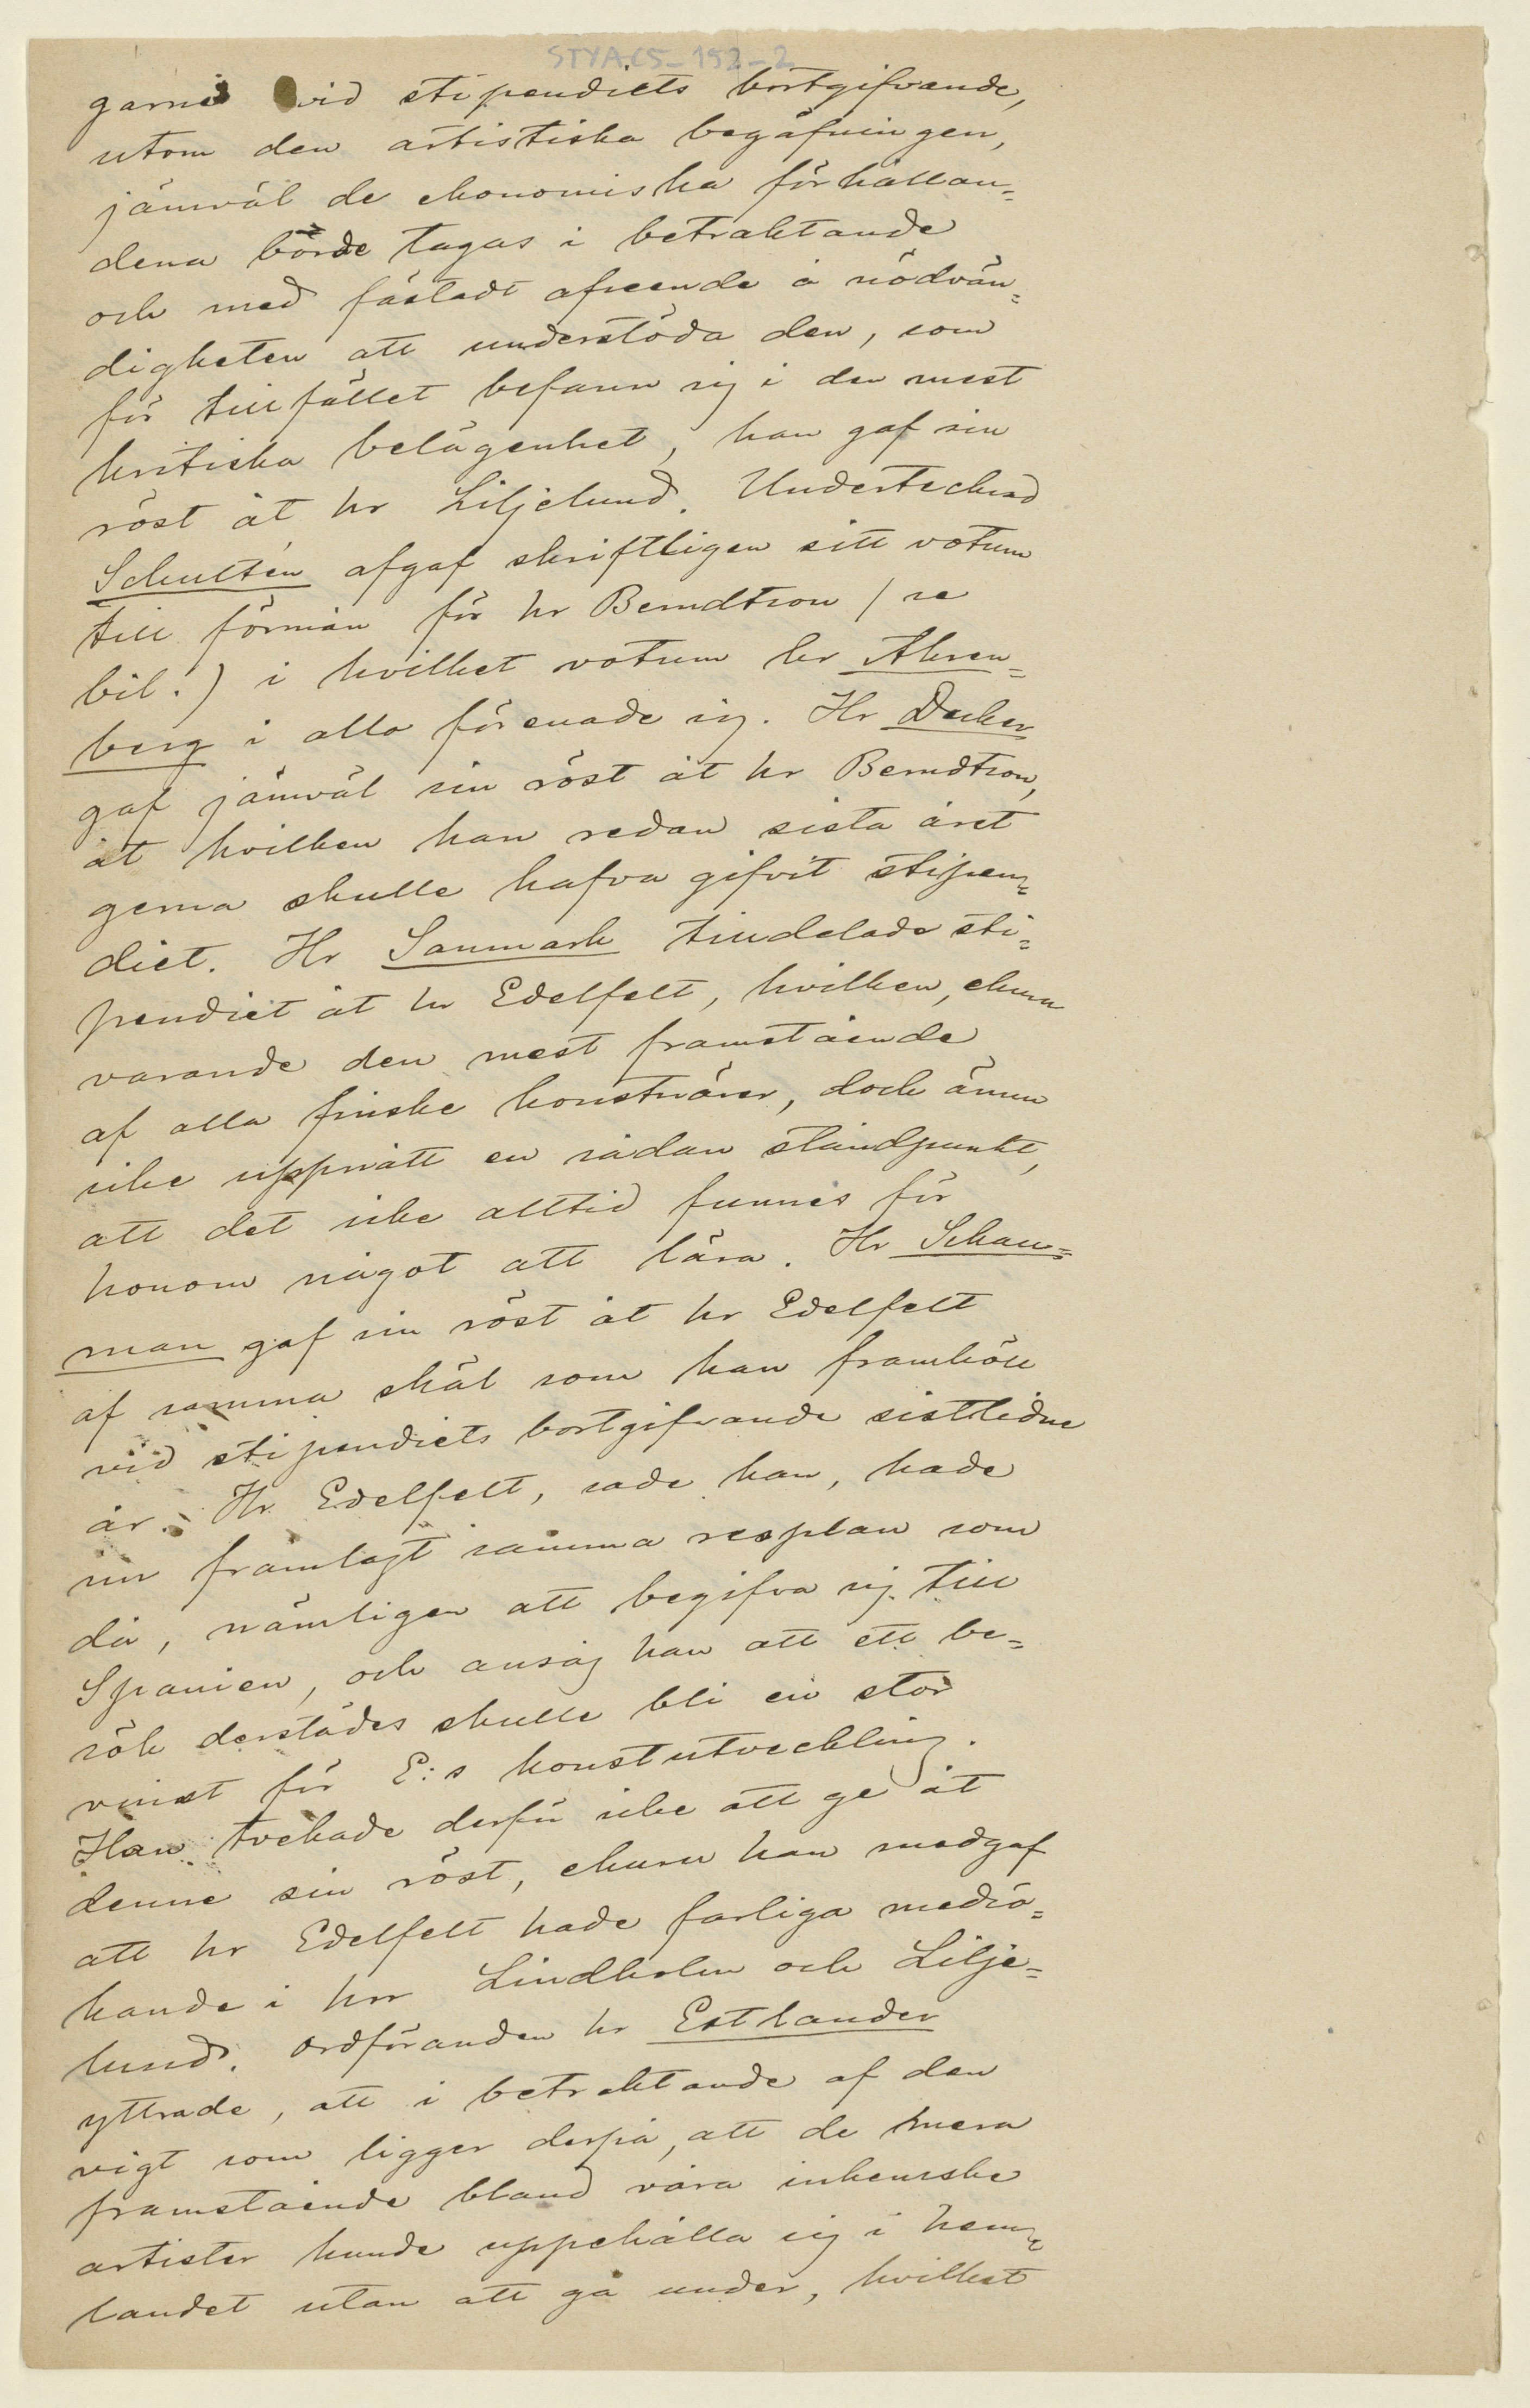 STYA C5-152-2
garne vid stipendiets bortgifvande,
utom den artistiska begåfningen,
jämväl de ekonomiska förhållan=
dena börde tagas i betraktande
och med fästadt afseende å nödvän=
digheten att understöda den, som
för tillfället befann sig i den mest
kritiska belägenhet, han gaf sin
röst åt hr Liljelund. Undertecknad
Schultén afgaf skriftligen sitt votum
till förmån för hr Berndtson / se
bil.) i hvilket votum hr Ahren=
berg i allo förenade sig. Hr Decker
gaf jämväl sin röst åt hr Berndtson,
åt hvilken han redan sista året
gerna skulle hafva gifvit stipen=
diet. Hr Sanmark tilldelade sti=
pendiet åt hr Edelfelt, hvilken, ehuru
varande den mest framstående
af alla finske konstnärer, dock ännu
icke uppnått en sådan ståndpunkt,
att det icke alltid funnes för
honom något att lära. Hr Schau=
man gaf sin röst åt hr Edelfelt
af samma skäl som han framhöll
vid stipendiets bortgifvande sistlidne
år. Hr Edelfelt, sade han, hade
nu framlagt samma resplan som
då, nämligen att begifva sig till
Spanien, och ansåg han att ett be=
sök derstädes skulle bli en stor
vinst för E:s konstutveckling.
Han tvekade derför icke att ge åt
denne sin röst, ehuru han medgaf
att hr Edelfelt hade farliga medsö=
kande i hrr Lindholm och Lilje=
lund. Ordföranden hr Estlander
yttrade, att i betraktande af den
vigt som ligger derpå, att de mera
framstående bland våra inhemske
artister kunde uppehålla sig i hem=
landet utan att gå under, hvilket